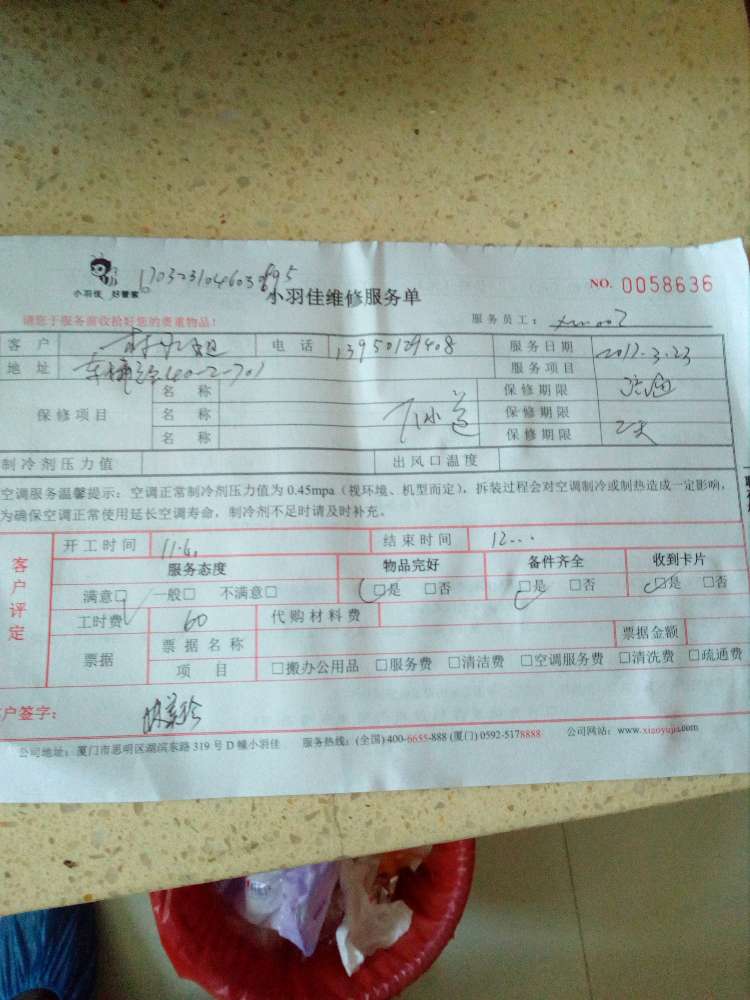 小羽佳 好管家
小羽佳维修服务单
NO. 0058636
请您于服务前收拾好您的贵重物品!
服务员工:
客户 电话 13950129408 服务日期 2017.3.23
地址 40-2-701 服务项目
保修项目 名称 保修期限
名称 下水道 保修期限
名称 保修期限
制冷剂压力值 出风口温度
空调服务温馨提示: 空调正常制冷剂压力值为 0.45mpa (视环境、机型而定), 拆装过程会对空调制冷或制热造成一定影响,
为确保空调正常使用延长空调寿命, 制冷剂不足时请及时补充。
客户评定
开工时间 结束时间
服务态度 物品完好 备件齐全 收到卡片
满意□ 一般□ 不满意□ □是 □否 □是 □否 □是 □否
工时费 60 代购材料费
票据 票据名称 票据金额
项目 □搬办公用品 □服务费 □清洁费 □空调服务费 □清洗费 □疏通费
户签字:
公司地址: 厦门市思明区湖滨东路 319 号 D 幢小羽佳 服务热线: (全国) 400-6655-888 (厦门) 0592-5178888 公司网站: www.xiaoyujia.com